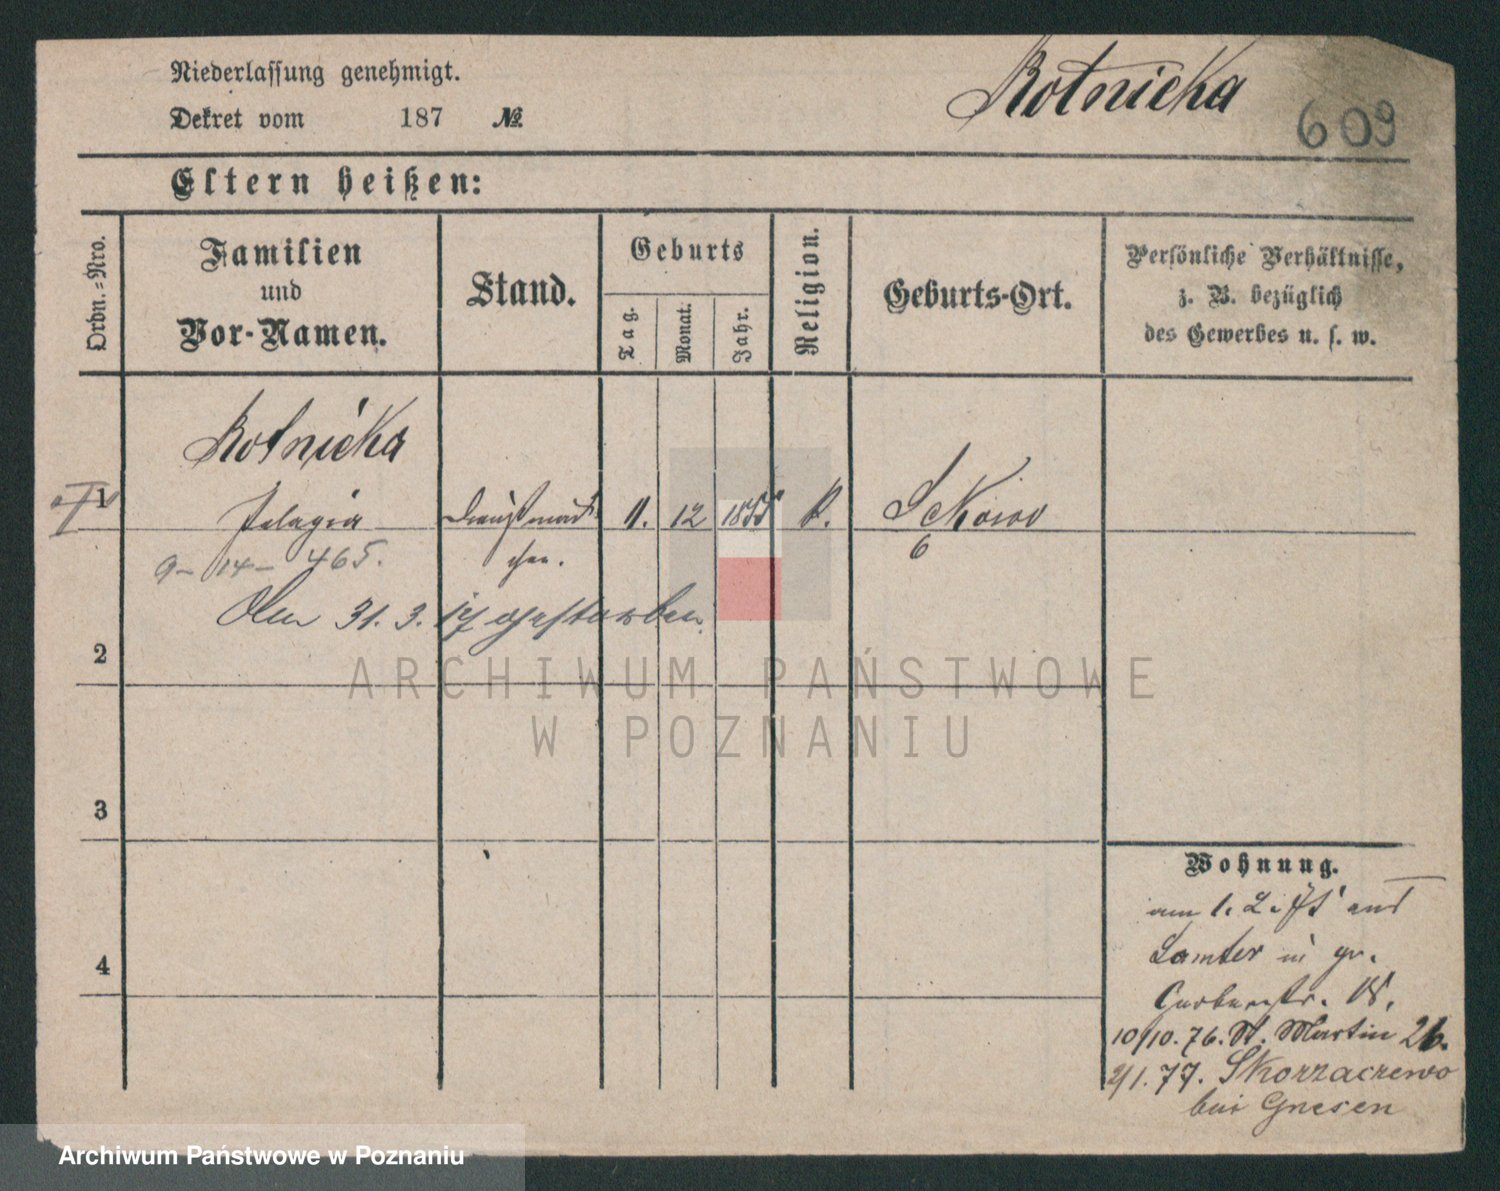 Niederlassung genehmigt.
Dekret vom 187 №
Rotnicka
609
Eltern heißen:
Ordn.-Nro.
Familien
und
Vor-Namen.
Stand.
Geburts
Tag.
Monat.
Jahr.
Religion.
Geburts-Ort.
Persönliche Verhältnisse,
z. B. bezüglich
des Gewerbes u. s. w.
Rotnicka
1
Pelagia
Dienstmäd
11. 12
chen.
9 - 14 - 465.
Den 31. 3. 17 gestorben.
2
3
4
Wohnung.
am 1. aus
Samter in gr.
Gerberstr. 18.
10/10. 76. St. Martin 26.
2/1. 77. Skorzaczewo
bei Gnesen
ARCHIWUM PAŃSTWOWE
W POZNANIU
Archiwum Państwowe w Poznaniu